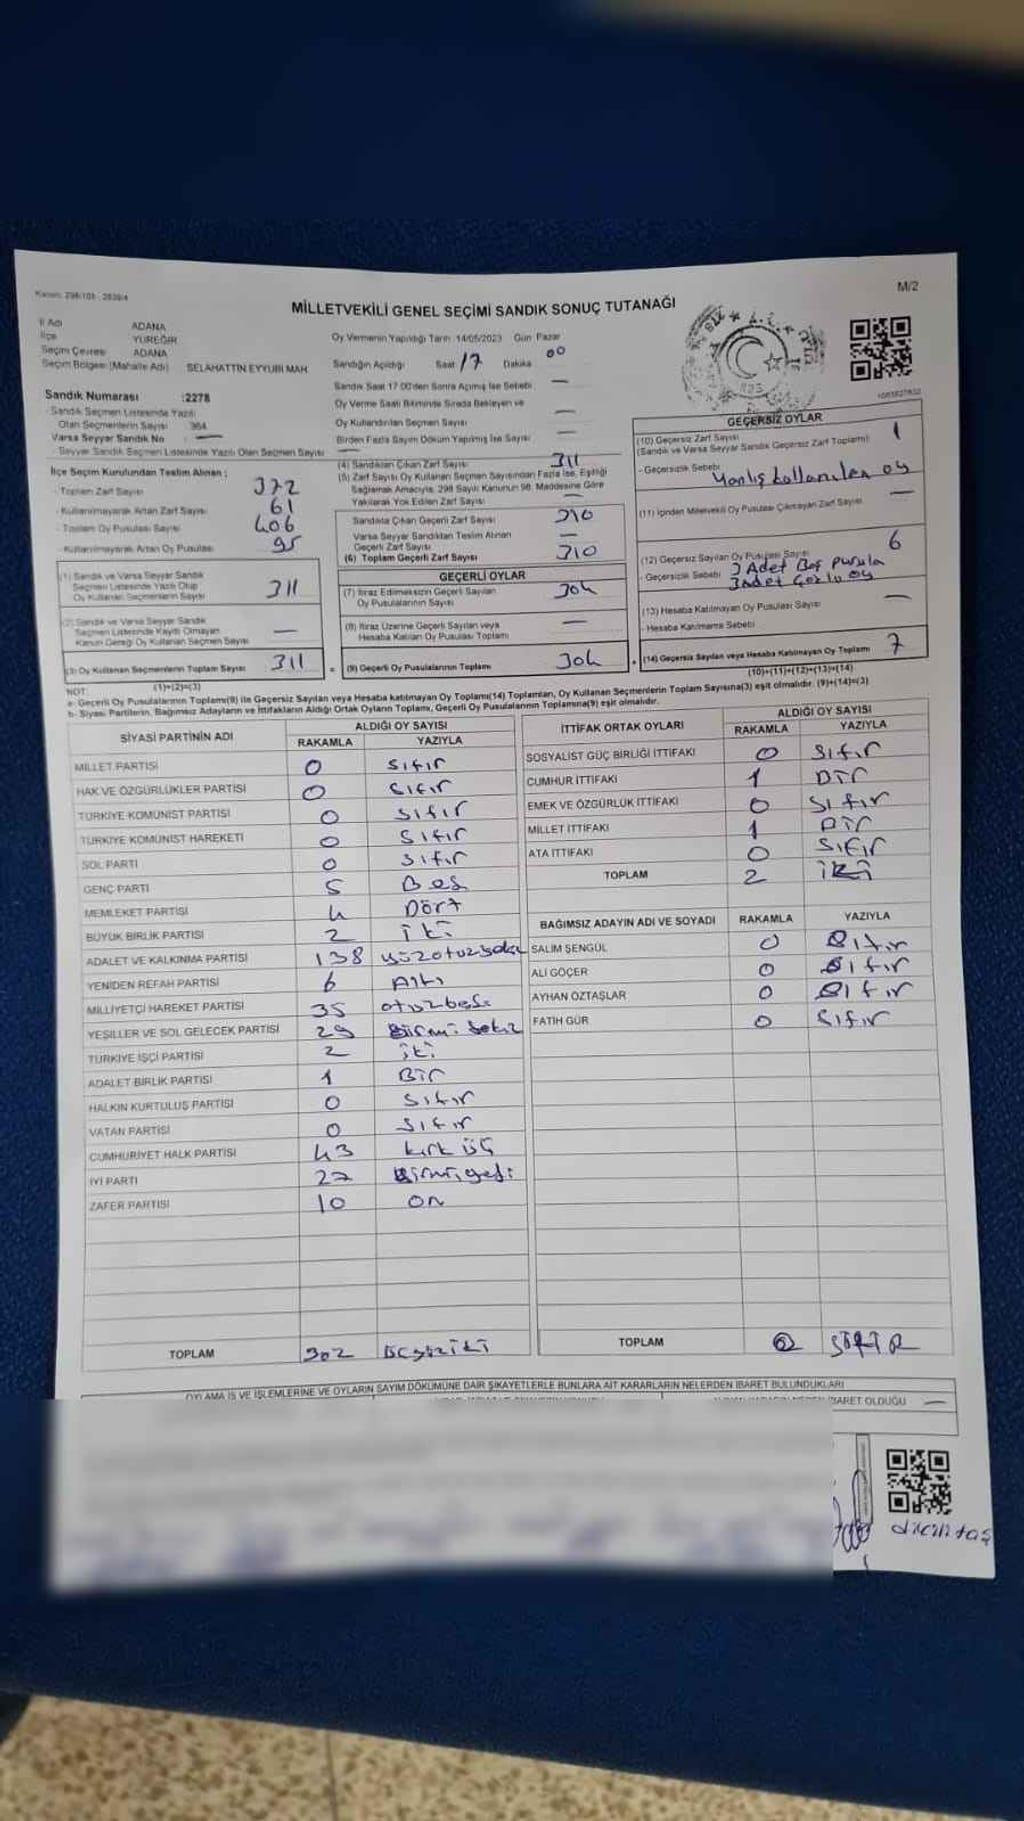 Kanun: 298/105 - 2839/4
M/2
MİLLETVEKİLİ GENEL SEÇİMİ SANDIK SONUÇ TUTANAĞI
İl Adı ADANA
İlçe YÜREĞİR
Seçim Çevresi ADANA
Seçim Bölgesi (Mahalle Adı) SELAHATTİN EYYUBİ MAH
Sandık Numarası :2278
- Sandık Seçmen Listesinde Yazılı
Olan Seçmenlerin Sayısı 364
Varsa Seyyar Sandık No —
- Seyyar Sandık Seçmen Listesinde Yazılı Olan Seçmen Sayısı —
İlçe Seçim Kurulundan Teslim Alınan :
- Toplam Zarf Sayısı 372
- Kullanılmayarak Artan Zarf Sayısı 61
- Toplam Oy Pusulası Sayısı 406
- Kullanılmayarak Artan Oy Pusulası 95
(1) Sandık ve Varsa Seyyar Sandık
Seçmen Listesinde Yazılı Olup
Oy Kullanan Seçmenlerin Sayısı 311
(2) Sandık ve Varsa Seyyar Sandık
Seçmen Listesinde Kayıtlı Olmayan
Kanun Gereği Oy Kullanan Seçmen Sayısı —
(3) Oy Kullanan Seçmenlerin Toplam Sayısı 311
(1)+(2)=(3)
Oy Vermenin Yapıldığı Tarih 14/05/2023 Gün Pazar
Sandığın Açıldığı Saat 17 Dakika 00
Sandık Saat 17:00'den Sonra Açılmış İse Sebebi —
Oy Verme Saati Bitiminde Sırada Bekleyen ve
Oy Kullandırılan Seçmen Sayısı —
Birden Fazla Sayım Döküm Yapılmış İse Sayısı —
(4) Sandıktan Çıkan Zarf Sayısı 311
(5) Zarf Sayısı Oy Kullanan Seçmen Sayısından Fazla İse, Eşitliği
Sağlamak Amacıyla, 298 Sayılı Kanunun 98. Maddesine Göre
Yakılarak Yok Edilen Zarf Sayısı —
Sandıkta Çıkan Geçerli Zarf Sayısı 310
Varsa Seyyar Sandıktan Teslim Alınan
Geçerli Zarf Sayısı —
(6) Toplam Geçerli Zarf Sayısı 310
GEÇERLİ OYLAR
(7) İtiraz Edilmeksizin Geçerli Sayılan
Oy Pusulalarının Sayısı 304
(8) İtiraz Üzerine Geçerli Sayılan veya
Hesaba Katılan Oy Pusulası Toplamı —
(9) Geçerli Oy Pusulalarının Toplamı 304
GEÇERSİZ OYLAR
(10) Geçersiz Zarf Sayısı 1
(Sandık ve Varsa Seyyar Sandık Geçersiz Zarf Toplamı)
- Geçersizlik Sebebi Yanlış kullanılan oy
(11) İçinden Milletvekili Oy Pusulası Çıkmayan Zarf Sayısı —
(12) Geçersiz Sayılan Oy Pusulası Sayısı 6
- Geçersizlik Sebebi 3 Adet Boş pusula
3 adet Çoklu oy
(13) Hesaba Katılmayan Oy Pusulası Sayısı —
- Hesaba Katılmama Sebebi
(14) Geçersiz Sayılan veya Hesaba Katılmayan Oy Toplamı 7
(10)+(11)+(12)+(13)=(14)
NOT:
a- Geçerli Oy Pusulalarının Toplamı(9) ile Geçersiz Sayılan veya Hesaba katılmayan Oy Toplamı(14) Toplamları, Oy Kullanan Seçmenlerin Toplam Sayısına(3) eşit olmalıdır. (9)+(14)=(3)
b- Siyasi Partilerin, Bağımsız Adayların ve İttifakların Aldığı Ortak Oyların Toplamı, Geçerli Oy Pusulalarının Toplamına(9) eşit olmalıdır.
SİYASİ PARTİNİN ADI ALDIĞI OY SAYISI
RAKAMLA YAZIYLA
MİLLET PARTİSİ 0 sıfır
HAK VE ÖZGÜRLÜKLER PARTİSİ 0 sıfır
TÜRKİYE KOMÜNİST PARTİSİ 0 sıfır
TÜRKİYE KOMÜNİST HAREKETİ 0 sıfır
SOL PARTİ 0 sıfır
GENÇ PARTİ 5 Beş
MEMLEKET PARTİSİ 4 Dört
BÜYÜK BİRLİK PARTİSİ 2 iki
ADALET VE KALKINMA PARTİSİ 138 yüzotuzsekiz
YENİDEN REFAH PARTİSİ 6 Altı
MİLLİYETÇİ HAREKET PARTİSİ 35 otuzbeş
YEŞİLLER VE SOL GELECEK PARTİSİ 29 yirmi sekiz
TÜRKİYE İŞÇİ PARTİSİ 2 iki
ADALET BİRLİK PARTİSİ 1 Bir
HALKIN KURTULUŞ PARTİSİ 0 sıfır
VATAN PARTİSİ 0 sıfır
CUMHURİYET HALK PARTİSİ 43 kırk üç
İYİ PARTİ 27 yirmiyedi
ZAFER PARTİSİ 10 on
TOPLAM 302 üçyüziki
İTTİFAK ORTAK OYLARI ALDIĞI OY SAYISI
RAKAMLA YAZIYLA
SOSYALİST GÜÇ BİRLİĞİ İTTİFAKI 0 sıfır
CUMHUR İTTİFAKI 1 Bir
EMEK VE ÖZGÜRLÜK İTTİFAKI 0 sıfır
MİLLET İTTİFAKI 1 Bir
ATA İTTİFAKI 0 sıfır
TOPLAM 2 iki
BAĞIMSIZ ADAYIN ADI VE SOYADI RAKAMLA YAZIYLA
SALİM ŞENGÜL 0 sıfır
ALİ GÖÇER 0 sıfır
AYHAN ÖZTAŞLAR 0 sıfır
FATİH GÜR 0 sıfır
TOPLAM 0 SIFIR
OYLAMA İŞ VE İŞLEMLERİNE VE OYLARIN SAYIM DÖKÜMÜNE DAİR ŞİKAYETLERLE BUNLARA AİT KARARLARIN NELERDEN İBARET BULUNDUKLARI
İBARET OLDUĞU —
dikilitaş